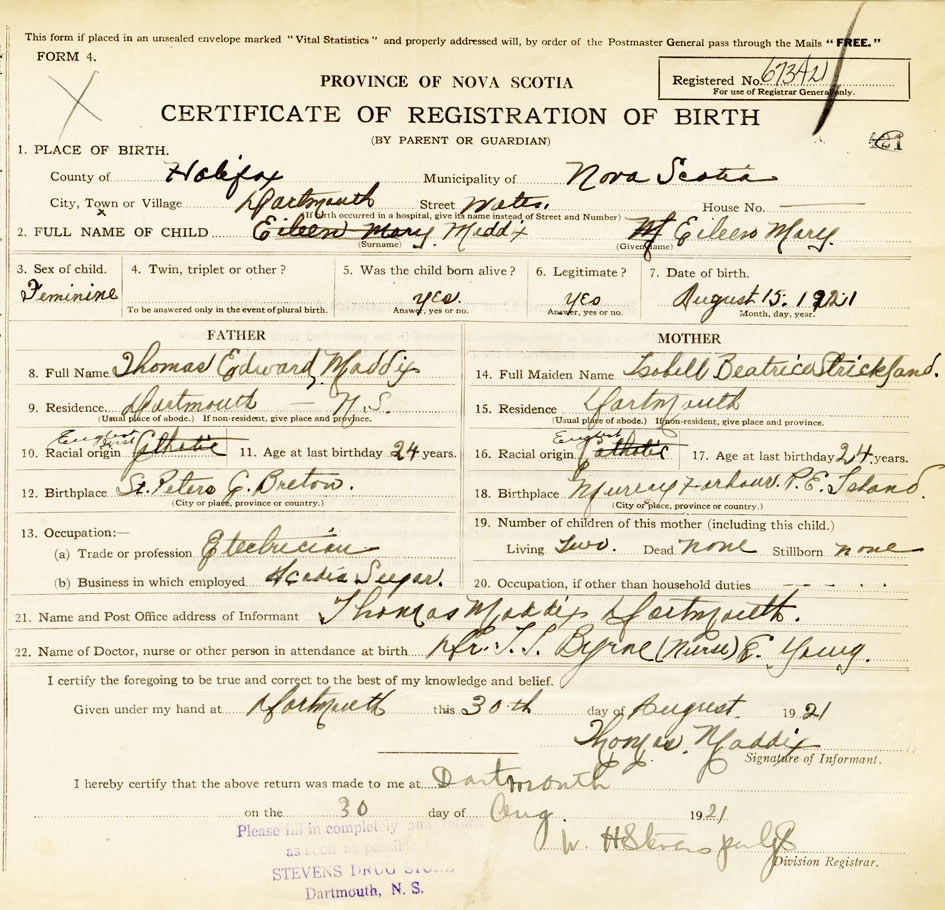 This form if placed in an unsealed envelope marked "Vital Statistics" and properly addressed will, by order of the Postmaster General pass through the Mails "FREE."
FORM 4.
PROVINCE OF NOVA SCOTIA
Registered No. 67342
For use of Registrar General only.
CERTIFICATE OF REGISTRATION OF BIRTH
(BY PARENT OR GUARDIAN)
1. PLACE OF BIRTH.
County of Halifax Municipality of Nova Scotia
City, Town or Village Dartmouth Street House No.
If birth occurred in a hospital, give its name instead of Street and Number)
2. FULL NAME OF CHILD Eileen Mary Maddix Eileen Mary.
(Surname) (Given name)
3. Sex of child. 4. Twin, triplet or other? 5. Was the child born alive? 6. Legitimate? 7. Date of birth.
Feminine yes. yes August 15. 1921
To be answered only in the event of plural birth. Answer, yes or no. Answer, yes or no. Month, day, year.
FATHER MOTHER
8. Full Name Thomas Edward Maddix 14. Full Maiden Name Isobell Beatrice Strickland.
9. Residence Dartmouth — N.S. 15. Residence Dartmouth
(Usual place of abode.) If non-resident, give place and province. (Usual place of abode.) If non-resident, give place and province.
10. Racial origin English Catholic 11. Age at last birthday 24 years. 16. Racial origin English Catholic 17. Age at last birthday 24 years.
12. Birthplace St. Peters C. Breton. 18. Birthplace Murray Harbour. P.E. Island.
(City or place, province or country.) (City or place, province or country.)
13. Occupation:— 19. Number of children of this mother (including this child.)
(a) Trade or profession Electrician Living Two. Dead none Stillborn none
(b) Business in which employed Acadia Sugar. 20. Occupation, if other than household duties
21. Name and Post Office address of Informant Thomas Maddix Dartmouth.
22. Name of Doctor, nurse or other person in attendance at birth Dr. Byrne (Nurse) E. Young.
I certify the foregoing to be true and correct to the best of my knowledge and belief.
Given under my hand at Dartmouth this 30th day of August 1921
Thomas. Maddix
Signature of Informant.
I hereby certify that the above return was made to me at Dartmouth
on the 30 day of Aug. 1921
Please fill in completely and return
as soon as possible to
W. H Stevens per
STEVENS DRUG STORE Division Registrar.
Dartmouth, N. S.